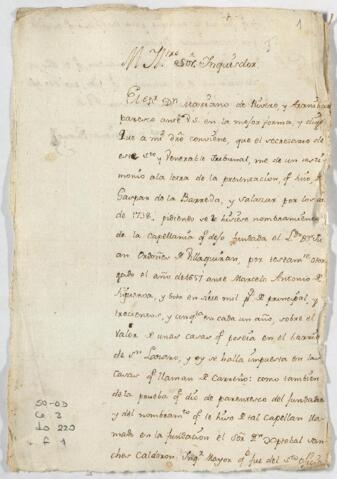 1
M Il.tre Sor. Inquisidor
El Dn. Mariano de Rivero, y Aranibar
paresce ante V.S. en la mejor forma, y digo
que a mi dro conviene, que el secretario de
este Sto. y Venerable Tribunal, me de un testi-
monio a la letra de la presentacion q. hizo Dn.
Gaspar de la Barreda, y Salazar por los años
de 1738, pidiendo se le hisiese nombramiento
de la Capellania q. dexo fundada el Ldo. Dn. Ju-
an Ordoñes de Villaquiran, por testamto. otor-
gado el año de 1657 ante Marcelo Antonio de
Figueroa, y esto en siete mil ps. de principal, y
trecientos, y cinqta. en cada un año, sobre el
valor de unas casas q. poseia en el barrio
de Sn. Lazaro, y oy se halla impuesta en las
casas q. llaman de Carreño: como tambien
de la prueba q. dio de parentesco del fundador
y del nombramto. q. le hizo de tal capellan lla-
mado en la fundacion el Sor. Dn. Xptobal San-
ches Calderon. Inqr. Mayor q. fue del Sto. Oficio
50-03
Ca 3
do 220
f 1